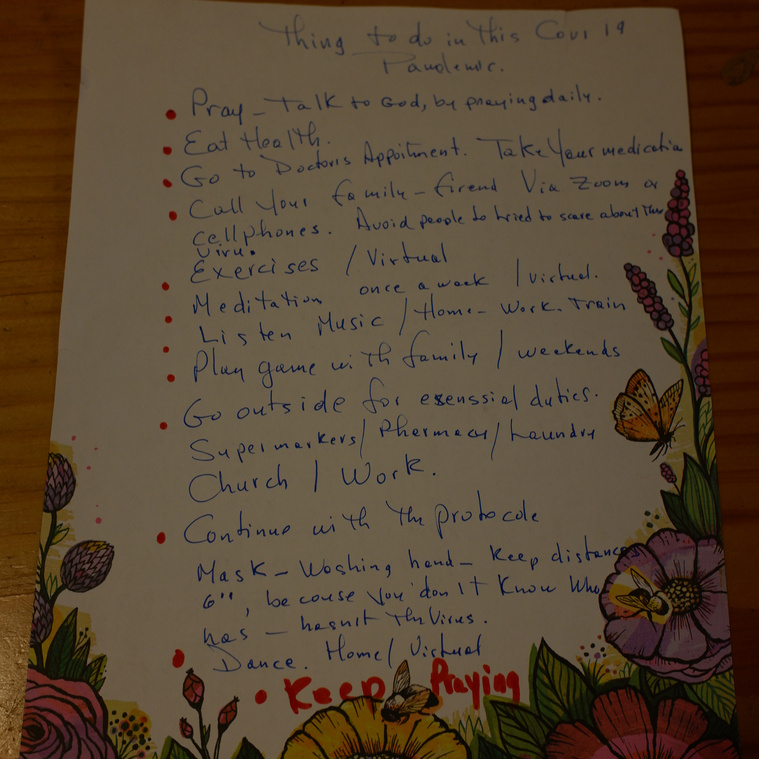 Thing to do in this Covi 19
Pandemic.
Pray - Talk to God, by praying daily.
Eat Health.
Go to Doctors Appoitment. Take Your medicatio
Call Your family - friend Via Zoom or
cellphones. Avoid people to tried to scare about The
Viru.
Exercises / Virtual
Meditation once a week / Virtual.
Listen Music / Home - Work. Train
Play game with family / weekends
Go outside for esenssial duties.
Supermarkers / Pharmacy / Laundry
Church / Work.
Continue with The protocole
Mask - Washing hand - Keep distance
6", because you don't Know Who
has - hasn't The Virus.
Dance. Home / Virtual
Keep Praying